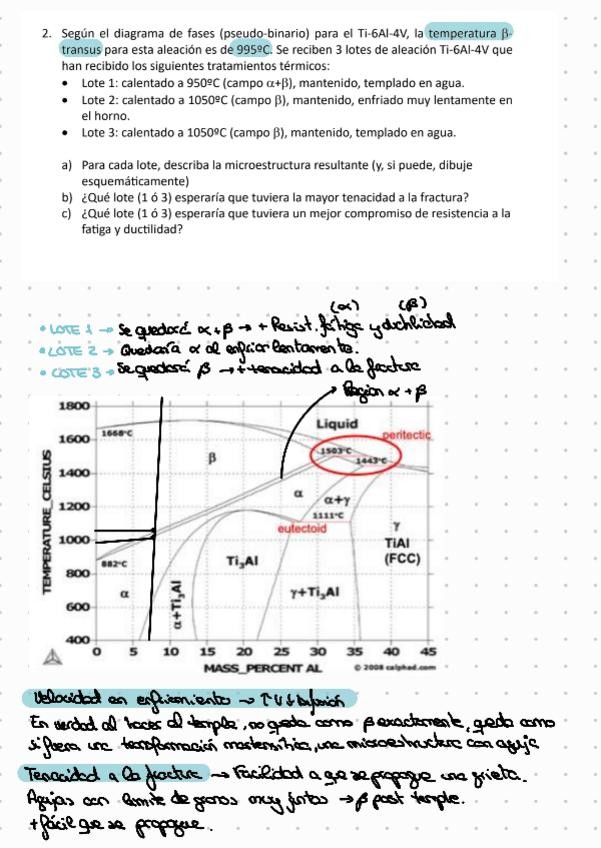 2. Según el diagrama de fases (pseudo-binario) para el Ti-6Al-4V, la temperatura β-
transus para esta aleación es de 995ºC. Se reciben 3 lotes de aleación Ti-6Al-4V que
han recibido los siguientes tratamientos térmicos:
• Lote 1: calentado a 950ºC (campo α+β), mantenido, templado en agua.
• Lote 2: calentado a 1050ºC (campo β), mantenido, enfriado muy lentamente en
el horno.
• Lote 3: calentado a 1050ºC (campo β), mantenido, templado en agua.
a) Para cada lote, describa la microestructura resultante (y, si puede, dibuje
esquemáticamente)
b) ¿Qué lote (1 ó 3) esperaría que tuviera la mayor tenacidad a la fractura?
c) ¿Qué lote (1 ó 3) esperaría que tuviera un mejor compromiso de resistencia a la
fatiga y ductilidad?
(α) (β)
• LOTE 1 → Se quedará α+β → + Resist. fatiga y ductilidad
• LOTE 2 → Quedaría α al enfriar lentamente.
• LOTE 3 → Se quedará β → + tenacidad a la fractura
Región α + β
1800
1600
1400
1200
1000
800
600
400
TEMPERATURE_CELSIUS
1668°C
882°C
β
α
α+Ti3Al
Ti3Al
Liquid
peritectic
1503°C
1443°C
α
α+γ
1111°C
eutectoid
γ
TiAl
(FCC)
γ+Ti3Al
0 5 10 15 20 25 30 35 40 45
MASS_PERCENT AL
© 2008 calphad.com
Velocidad en enfriamiento → ↑V ↓difusión
En verdad al hacer el temple, no queda como β exactamente, queda como
si fuera una transformación martensítica, una microestructura con aguja
Tenacidad a la fractura → Facilidad a que se propague una grieta.
Agujas con límite de granos muy juntos → β post temple.
+ fácil que se propague.